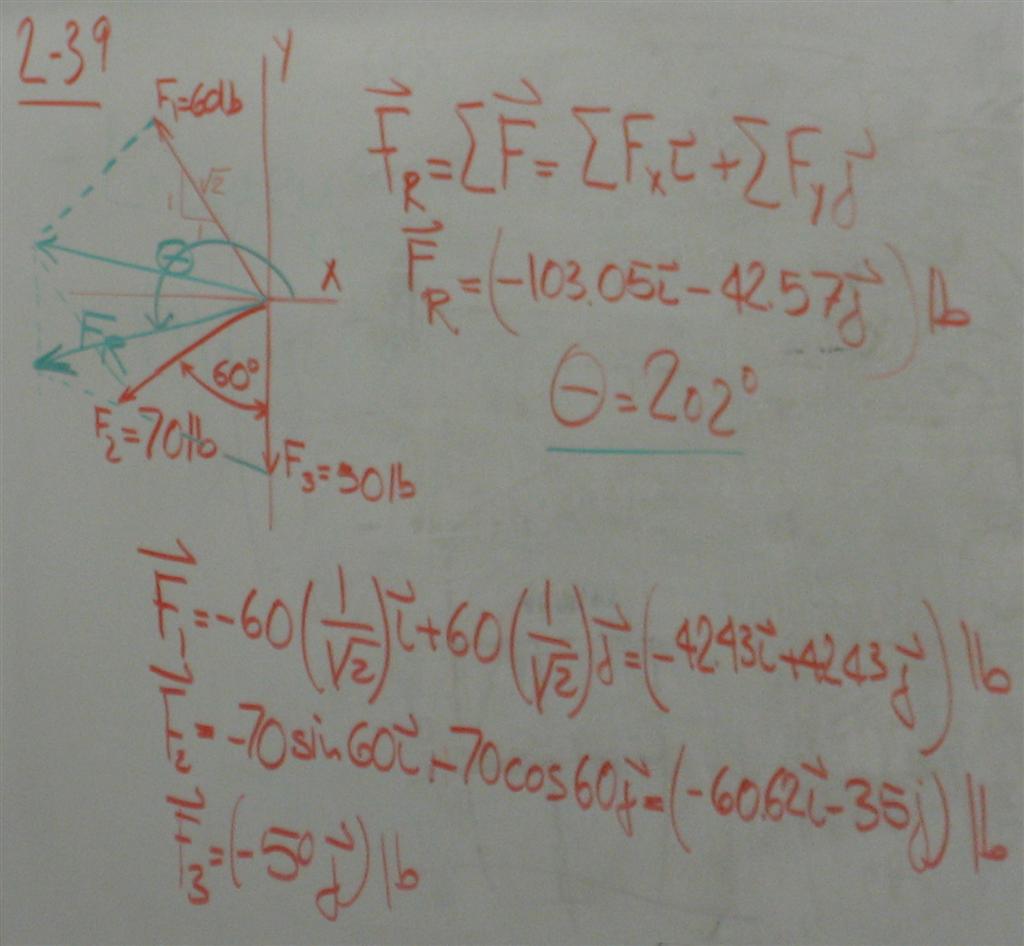 2-39
Y
F₁=60lb
√2
1
1
Θ
X
F_R
60°
F₂=70lb
F₃=50lb
F⃗_R=∑F⃗=∑Fₓi⃗+∑F_yj⃗
F⃗_R=(-103.05i⃗-42.57j⃗)lb
Θ=202°
F⃗₁=-60(1/√2)i⃗+60(1/√2)j⃗=(-42.43i⃗+42.43j⃗)lb
F⃗₂=-70sin60i⃗-70cos60j⃗=(-60.62i⃗-35j)lb
F⃗₃=(-50j⃗)lb